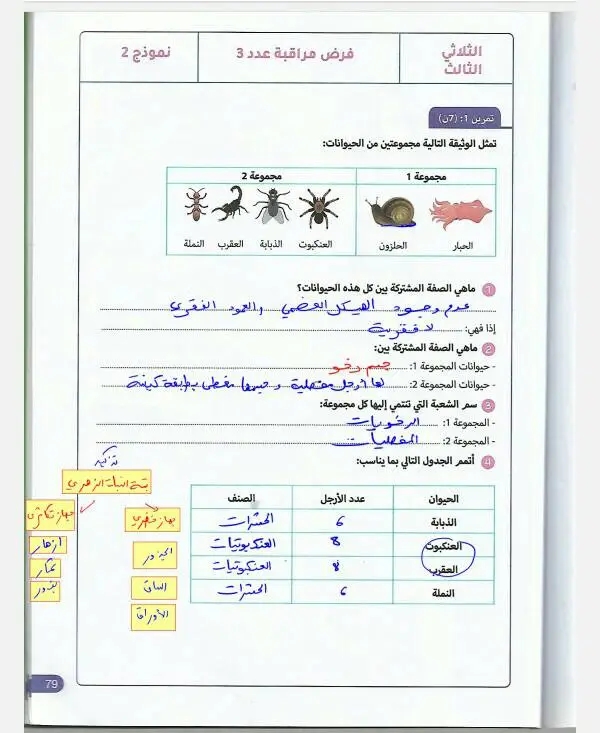 الثلاثي الثالث
فرض مراقبة عدد 3
نموذج 2
تمرين 1: (7ن)
تمثل الوثيقة التالية مجموعتين من الحيوانات:
مجموعة 1 مجموعة 2
الحبار الحلزون العنكبوت الذبابة العقرب النملة
1 ماهي الصفة المشتركة بين كل هذه الحيوانات؟
عدم وجود الهيكل العظمي والعمود الفقري
إذا فهي: لا فقرية
2 ماهي الصفة المشتركة بين:
- حيوانات المجموعة 1: جسم رخو
- حيوانات المجموعة 2: لها أرجل مفصلية وجسمها مغطى بطبقة كيتينة
3 سم الشعبة التي تنتمي إليها كل مجموعة:
- المجموعة 1: الرخويات
- المجموعة 2: المفصليات
4 أتمم الجدول التالي بما يناسب:
الحيوان عدد الأرجل الصنف
الذبابة 6 الحشرات
العنكبوت 8 العنكبوتيات
العقرب 8 العنكبوتيات
النملة 6 الحشرات
تذكير
بنية النبتة الزهرية
جهاز خضري
الجذور
الساق
الأوراق
جهاز تكاثري
أزهار
ثمار
بذور
79